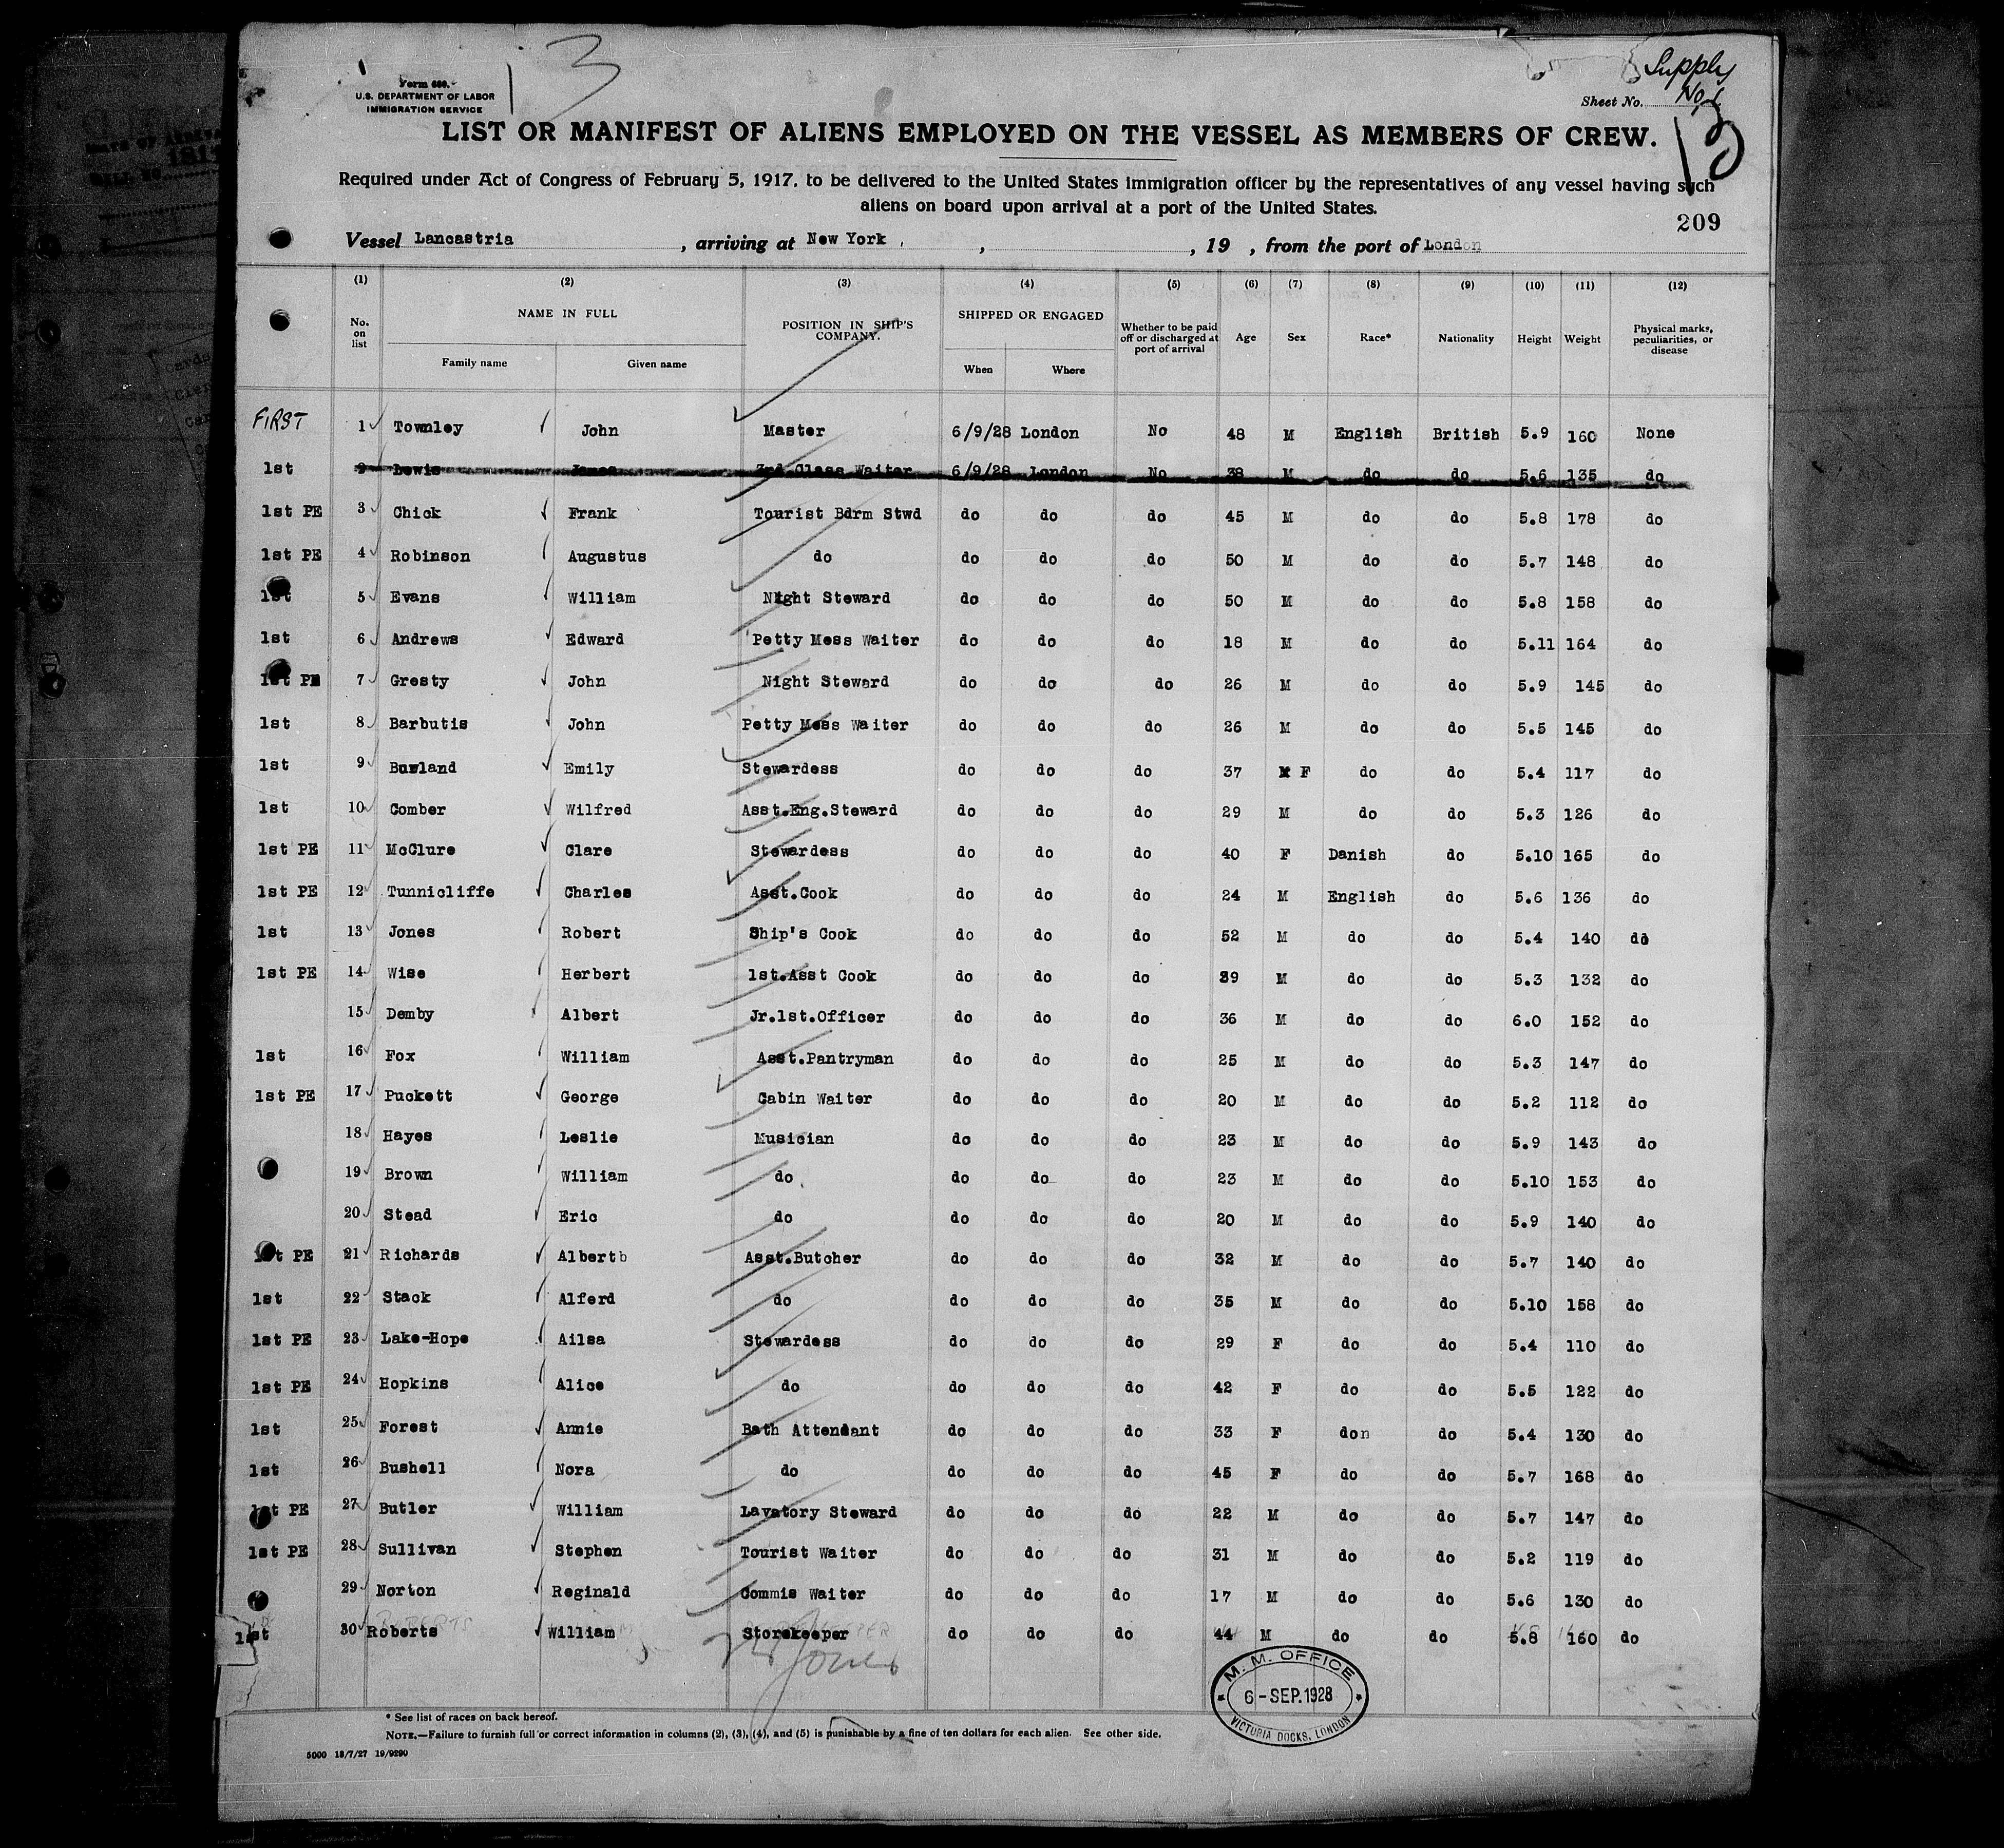 13
Supply
No 1
Form 680.
U.S. DEPARTMENT OF LABOR
IMMIGRATION SERVICE
Sheet No.
13
LIST OR MANIFEST OF ALIENS EMPLOYED ON THE VESSEL AS MEMBERS OF CREW.
Required under Act of Congress of February 5, 1917, to be delivered to the United States immigration officer by the representatives of any vessel having such
aliens on board upon arrival at a port of the United States.
209
Vessel Lancastria, arriving at New York, , 19 , from the port of London
(1) (2) (3) (4) (5) (6) (7) (8) (9) (10) (11) (12)
No. on list NAME IN FULL Family name Given name POSITION IN SHIP'S COMPANY. SHIPPED OR ENGAGED When Where Whether to be paid off or discharged at port of arrival Age Sex Race* Nationality Height Weight Physical marks, peculiarities, or disease
FIRST 1 Townley John Master 6/9/28 London No 48 M English British 5.9 160 None
1st 2 Lewis James 3rd.Class Waiter 6/9/28 London No 38 M do do 5.6 135 do
1st PE 3 Chick Frank Tourist Bdrm Stwd do do do 45 M do do 5.8 178 do
1st PE 4 Robinson Augustus do do do do 50 M do do 5.7 148 do
1st 5 Evans William Night Steward do do do 50 M do do 5.8 158 do
1st 6 Andrews Edward Petty Mess Waiter do do do 18 M do do 5.11 164 do
1st PE 7 Gresty John Night Steward do do do 26 M do do 5.9 145 do
1st 8 Barbutis John Petty Mess Waiter do do do 26 M do do 5.5 145 do
1st 9 Burland Emily Stewardess do do do 37 M F do do 5.4 117 do
1st 10 Comber Wilfred Asst.Eng.Steward do do do 29 M do do 5.3 126 do
1st PE 11 McClure Clare Stewardess do do do 40 F Danish do 5.10 165 do
1st PE 12 Tunnicliffe Charles Asst.Cook do do do 24 M English do 5.6 136 do
1st 13 Jones Robert Ship's Cook do do do 52 M do do 5.4 140 do
1st PE 14 Wise Herbert 1st.Asst Cook do do do 39 M do do 5.3 132 do
15 Demby Albert Jr.1st.Officer do do do 36 M do do 6.0 152 do
1st 16 Fox William Asst.Pantryman do do do 25 M do do 5.3 147 do
1st PE 17 Puckett George Cabin Waiter do do do 20 M do do 5.2 112 do
18 Hayes Leslie Musician do do do 23 M do do 5.9 143 do
19 Brown William do. do do do 23 M do do 5.10 153 do
20 Stead Eric do do do do 20 M do do 5.9 140 do
1st PE 21 Richards Albertb Asst.Butcher do do do 32 M do do 5.7 140 do
1st 22 Stack Alferd do do do do 35 M do do 5.10 158 do
1st PE 23 Lake-Hope Ailsa Stewardess do do do 29 F do do 5.4 110 do
1st PE 24 Hopkins Alice do do do do 42 F do do 5.5 122 do
1st 25 Forest Annie Bath Attendant do do do 33 F don do 5.4 130 do
1st 26 Bushell Nora do do do do 45 F do do 5.7 168 do
1st PE 27 Butler William Lavatory Steward do do do 22 M do do 5.7 147 do
1st PE 28 Sullivan Stephen Tourist Waiter do do do 31 M do do 5.2 119 do
29 Norton Reginald Commis Waiter do do do 17 M do do 5.6 130 do
1st 30 Roberts William Storekeeper do do do 44 M do do 5.8 160 do
Jones
M. M. OFFICE
6-SEP.1928
VICTORIA DOCKS, LONDON
* See list of races on back hereof.
NOTE.—Failure to furnish full or correct information in columns (2), (3), (4), and (5) is punishable by a fine of ten dollars for each alien. See other side.
5000 13/7/27 19/9290